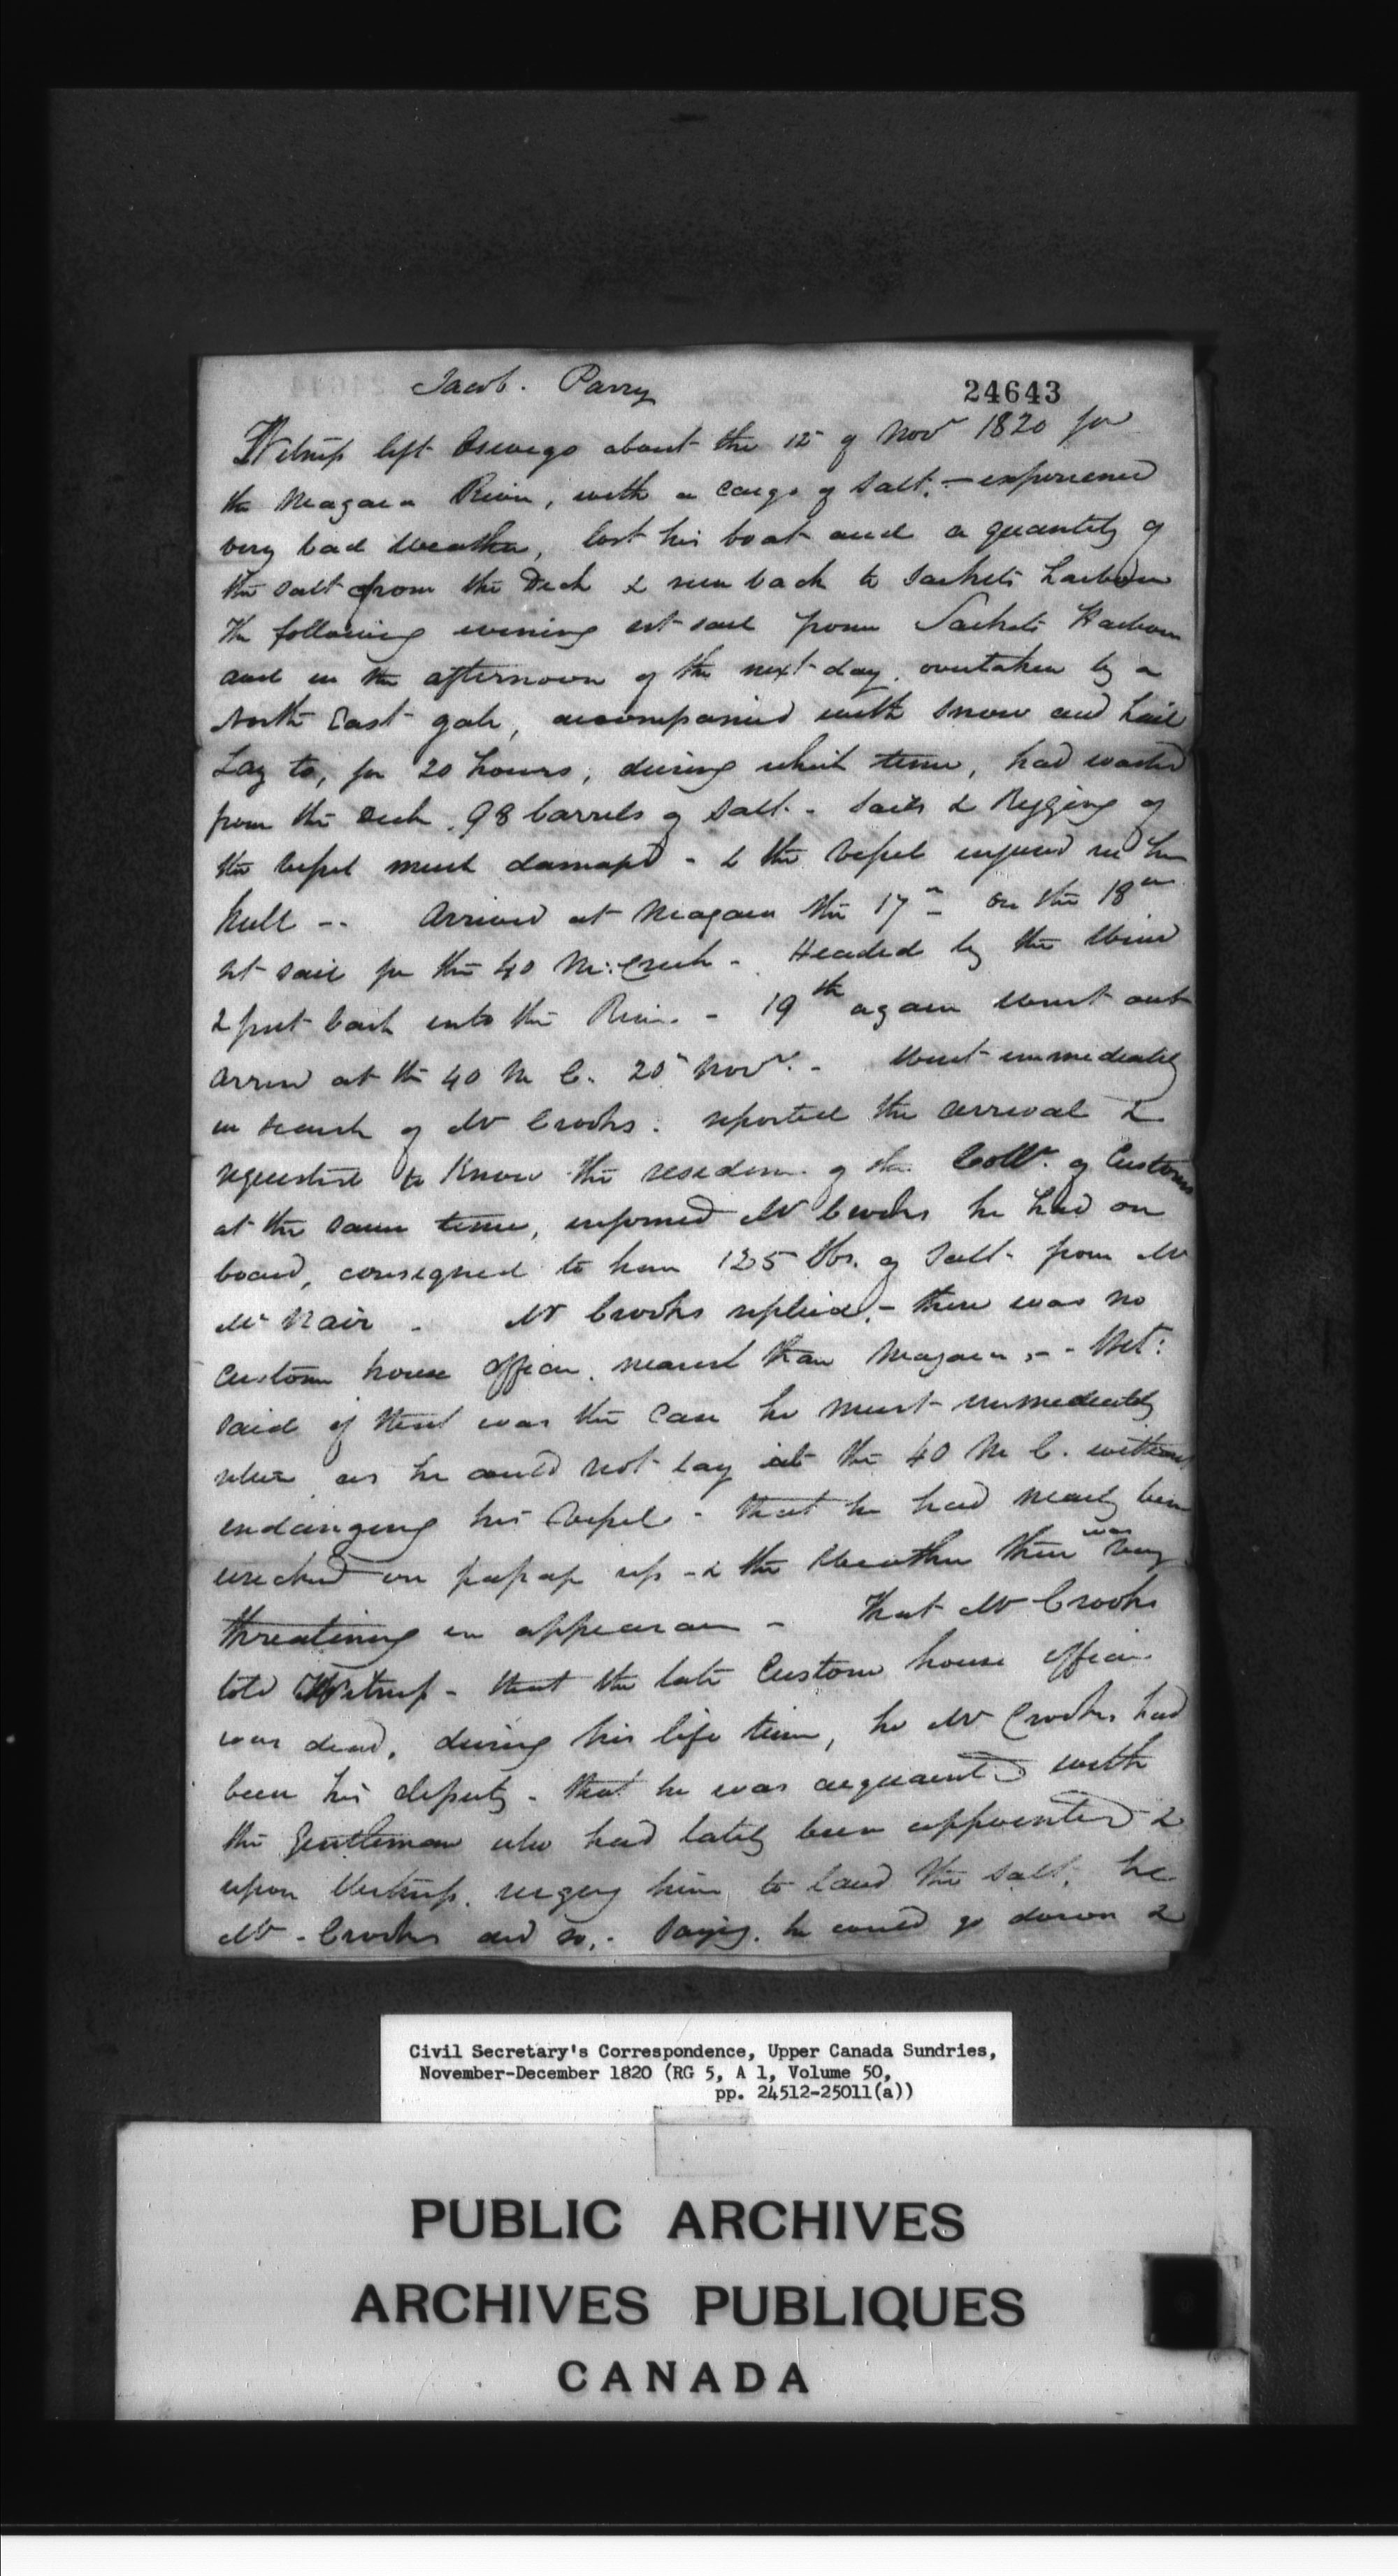 Jacob. Parry
24643
Witrup left Oswego about the 12 of Novr 1820 for
the Niagara River, with a cargo of Salt, - experienced
very bad Weather, lost his boat and a quantity of
the salt from the Deck & run back to Sackets harbour
The following evening set sail from Sackets Harbour
and in the afternoon of the next day, overtaken by a
North East gale, accompanied with Snow and hail
Lay to, for 20 hours, during which time, had washed
from the Deck 98 barrels of Salt - Sails & Rigging of
the vessel much damaged - & the vessel injured in her
hull -- Arrived at Niagara the 17th on the 18th
set sail for the 40 M: Creek - Headed by the Wind
& put back into the River - 19th again went out
arrived at the 40 M C. 20th Novr. - Went immediately
in search of Mr Crooks. reported the arrival &
requested to know the residence of the Collr. of Customs
at the same time, informed Mr Crooks he had on
board, consigned to him 125 bbs. of Salt from Mr
Mc Nair - Mr Crooks replied, - there was no
Custom house Officer nearer than Niagara, - - Wit:
said if that was the case he must immediately
as he could not lay at the 40 M C. without
endangering his vessel - that he had nearly been
wrecked on passage up - & the Weather then was very
threatening in appearance - That Mr Crooks
told Witrup - that the late Custom house officer
was dead, during his life time, he Mr Crooks had
been his deputy - that he was acquainted with
the Gentleman who had lately been appointed &
upon Witrup. urging him to land the Salt, he
Mr - Crooks did so, - Saying. he could go down &
Civil Secretary's Correspondence, Upper Canada Sundries,
November-December 1820 (RG 5, A 1, Volume 50,
pp. 24512-25011(a))
PUBLIC ARCHIVES
ARCHIVES PUBLIQUES
CANADA